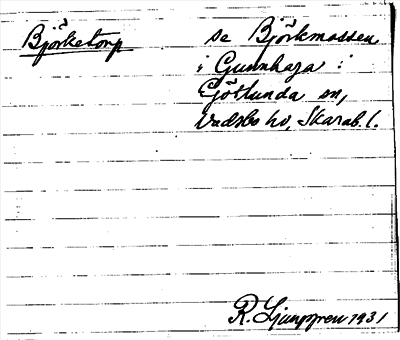 Björketorp se Björkmossen
i Gunnhaga i
Götlunda sn,
Vadsbo hd, Skarab. l.
R. Ljunggren 1931